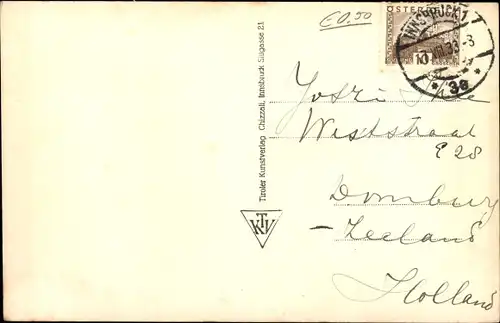 €0,50
ÖSTERR
10
INNSBRUCK 1
VIII.33-8
* 3a *
Tiroler Kunstverlag Chizzali, Innsbruck Sillgasse 21
TKV
Weststraat
E 28
Domburg
- Zeeland
Holland